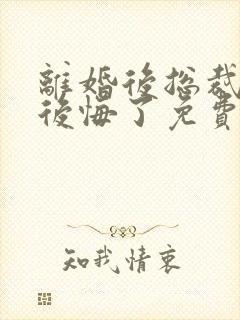 離婚後総裁
後悔了免費
知我情衷